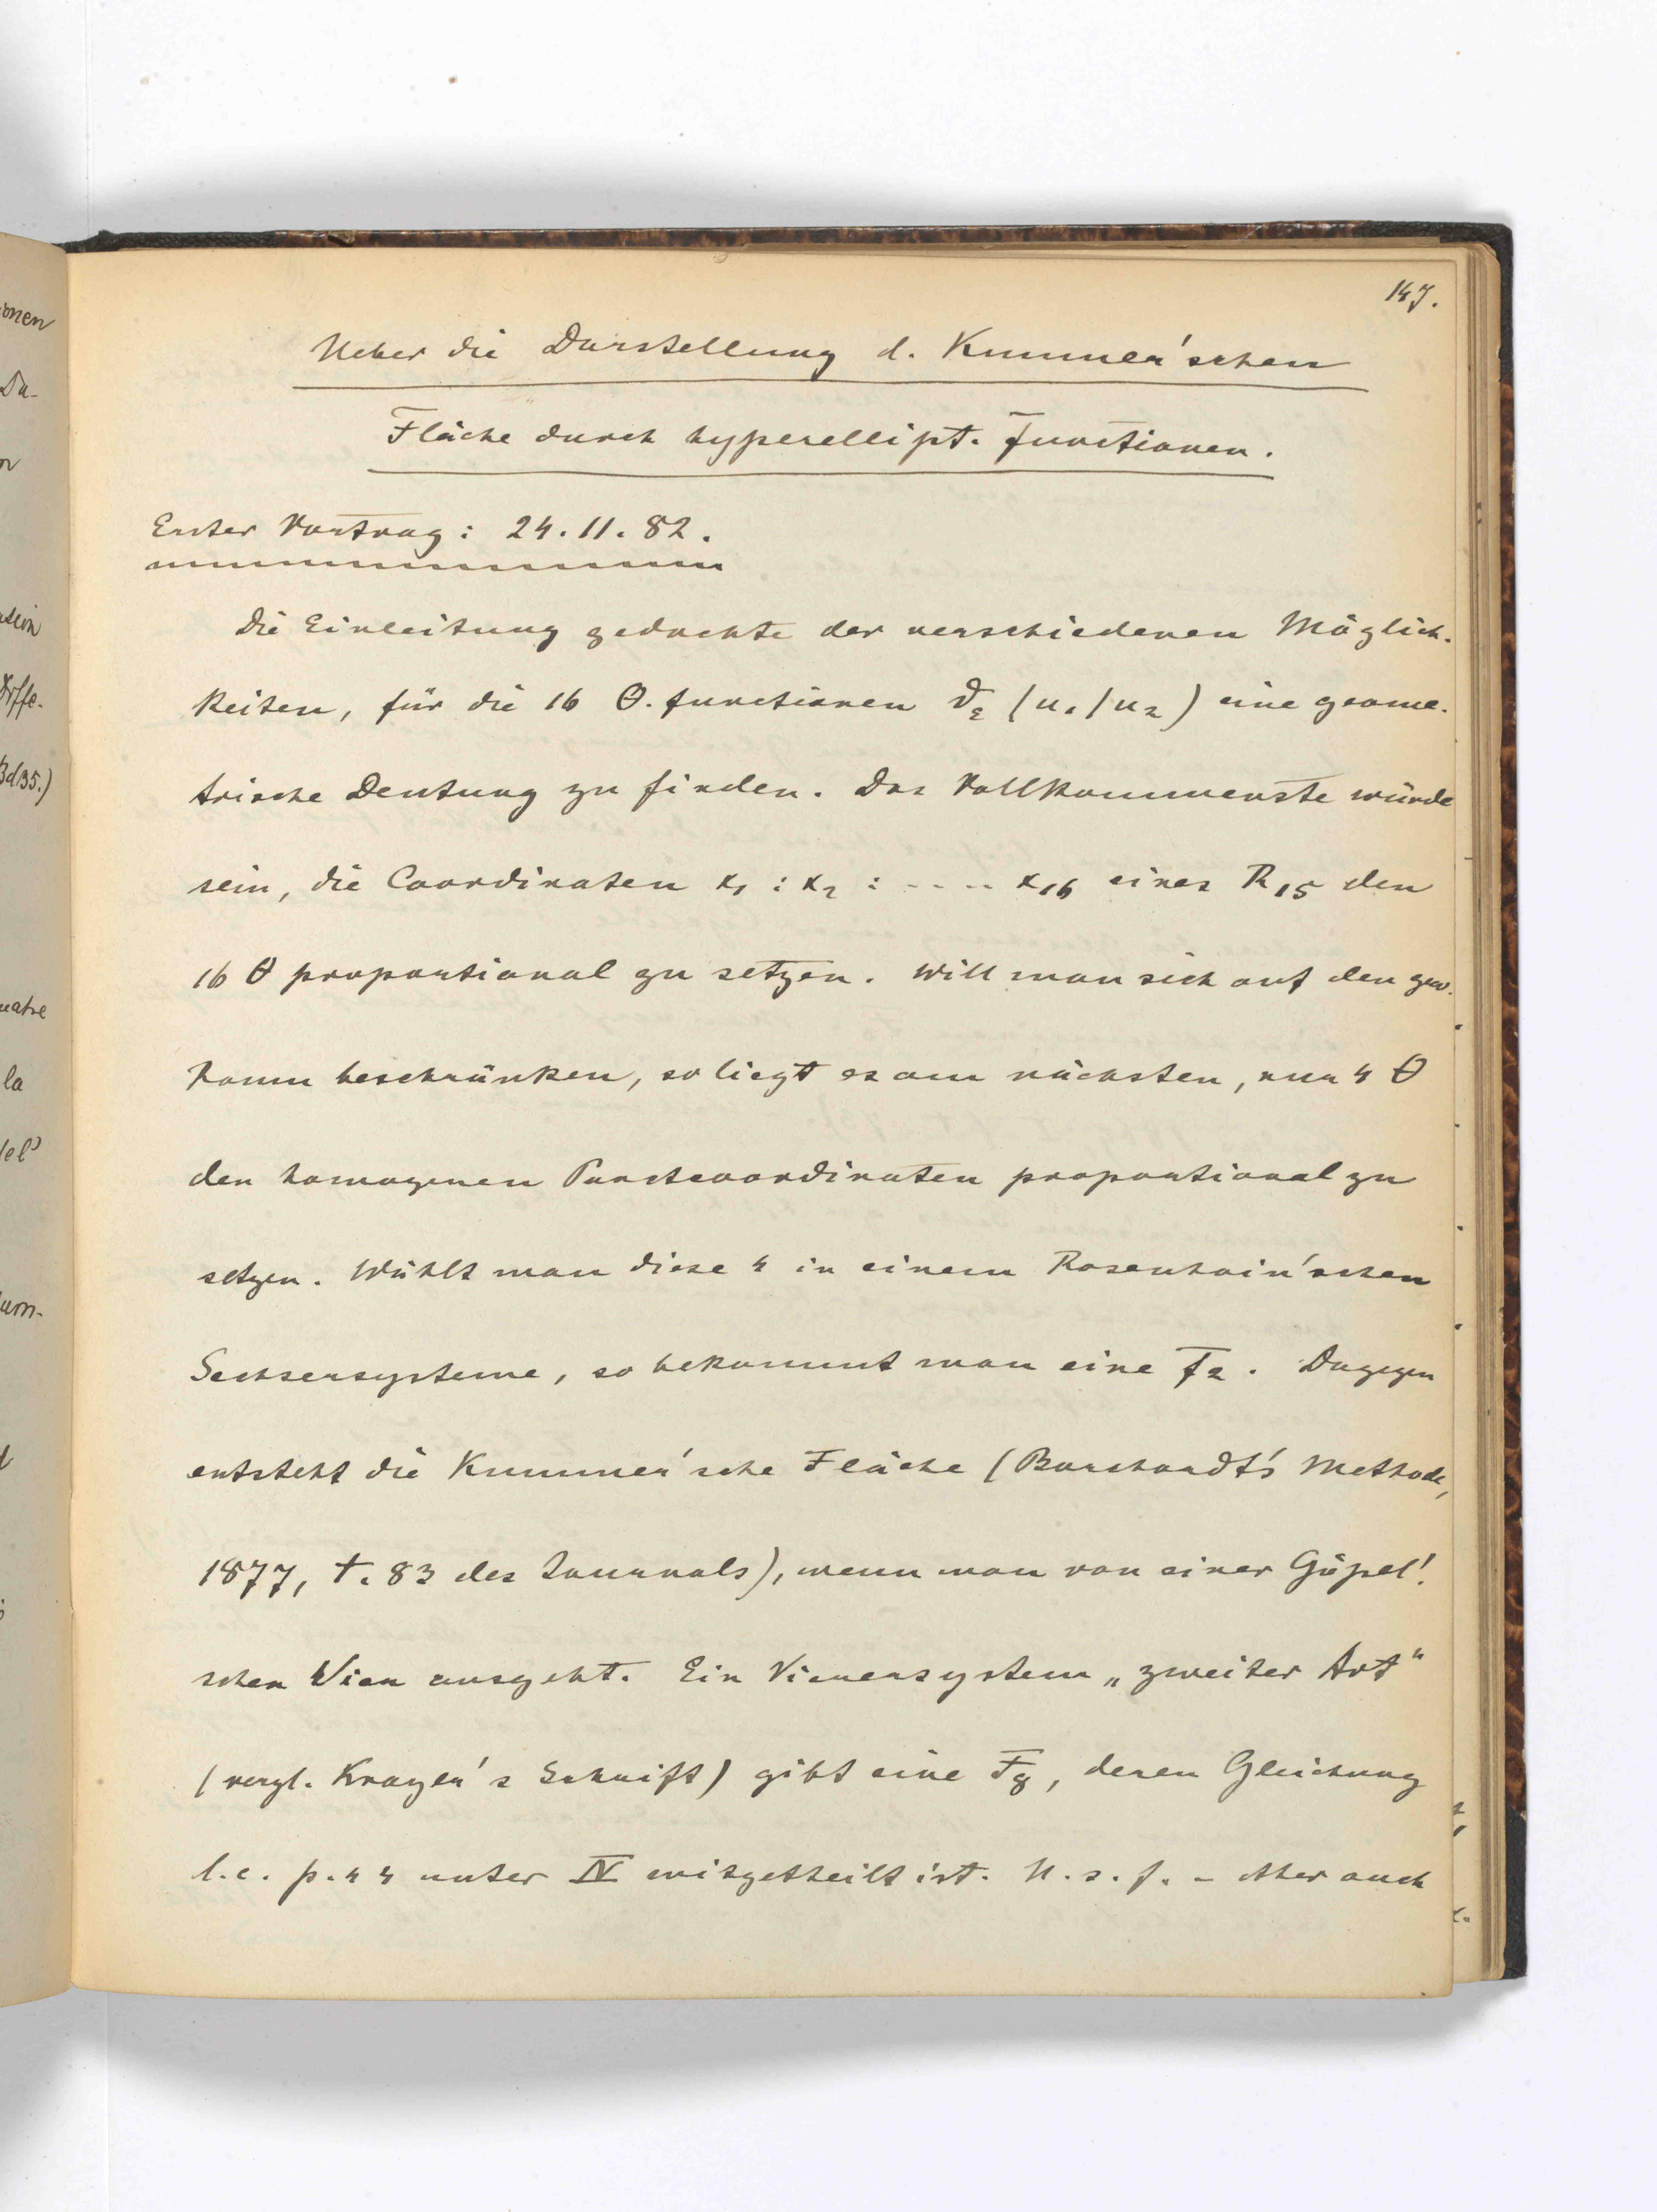 147.
Ueber die Darstellung d. Kummer'schen
Fläche durch hyperellipt. Functionen.
Erster Vortrag: 24.11.82.
Die Einleitung gedachte der verschiedenen Möglich-
keiten, für die 16 Θ.functionen ϑ (u₁/u₂) eine geome-
trische Deutung zu finden. Das Vollkommenste würde
sein, die Coordinaten x₁ : x₂ : .... x₁₆ eines R₁₅ den
16 θ proportional zu setzen. Will man sich auf den gew.
Raum beschränken, so liegt es am nächsten, nur 4 θ
den homogenen Punctcoordinaten proportional zu
setzen. Wählt man diese 4 in einem Rosenhain'schen
Sechsersysteme, so bekommt man eine F₂. Dagegen
entsteht die Kummer'sche Fläche (Borchardt's Methode,
1877, t. 83 des Journals), wenn man von einer Göpel'-
schen Vier ausgeht. Ein Vierersystem „zweiter Art“
(vergl. Krazer's Schrift) gibt eine F₈, deren Gleichung
l.c. p. 44 unter IV mitgetheilt ist. U.s.f. - Aber auch
onen
Du-
Diffe-
Bd 35.)
la